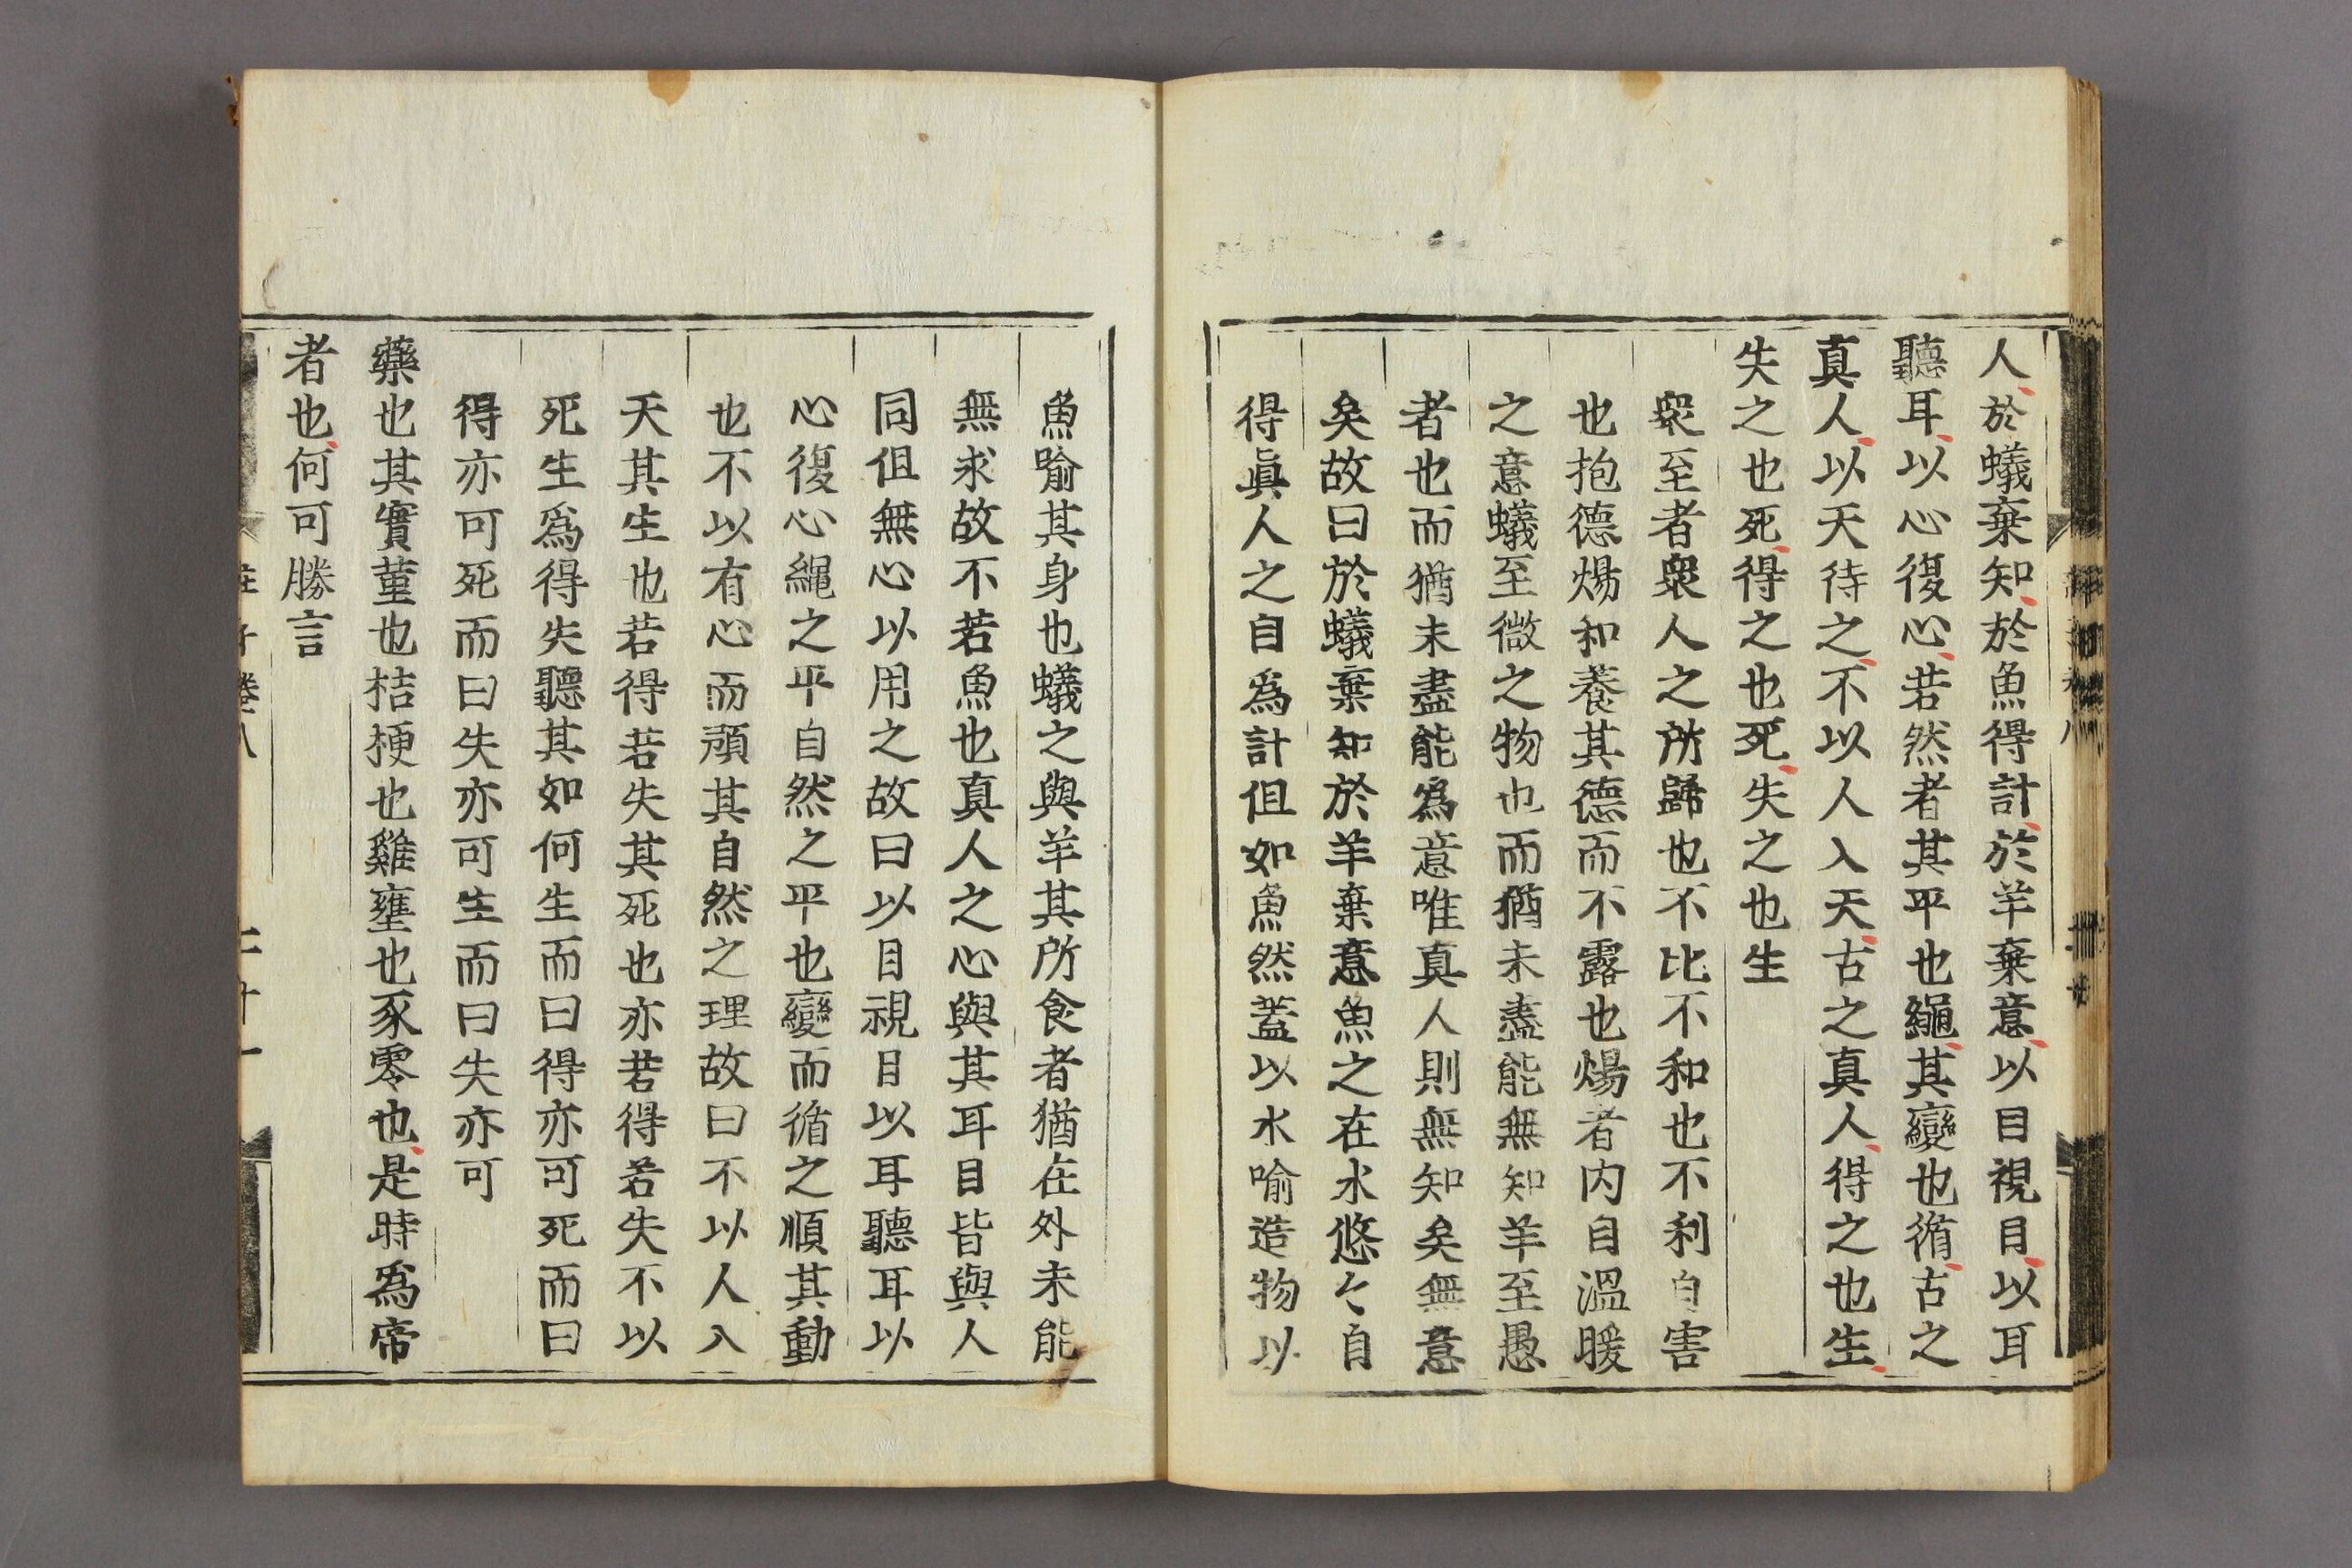 人於蟻棄知於魚得計於羊棄意以目視目以耳
聽耳以心復心若然者其平也繩其變也循古之
真人以天待之不以人入天古之真人得之也生
失之也死得之也死失之也生
衆至者衆人之所歸也不比不和也不利自害
也抱德煬和養其德而不露也煬者内自溫暖
之意蟻至微之物也而猶未盡能無知羊至愚
者也而猶未盡能爲意唯真人則無知矣無意
矣故曰於蟻棄知於羊棄意魚之在水悠々自
得眞人之自爲計但如魚然蓋以水喻造物以
魚喻其身也蟻之與羊其所食者猶在外未能
無求故不若魚也真人之心與其耳目皆與人
同但無心以用之故曰以目視目以耳聽耳以
心復心繩之平自然之平也變而循之順其動
也不以有心而頑其自然之理故曰不以人入
天其生也若得若失其死也亦若得若失不以
死生爲得失聽其如何生而曰得亦可死而曰
得亦可死而曰失亦可生而曰失亦可
藥也其實菫也桔梗也雞壅也豕零也是時爲帝
者也何可勝言
莊子卷八 二十一